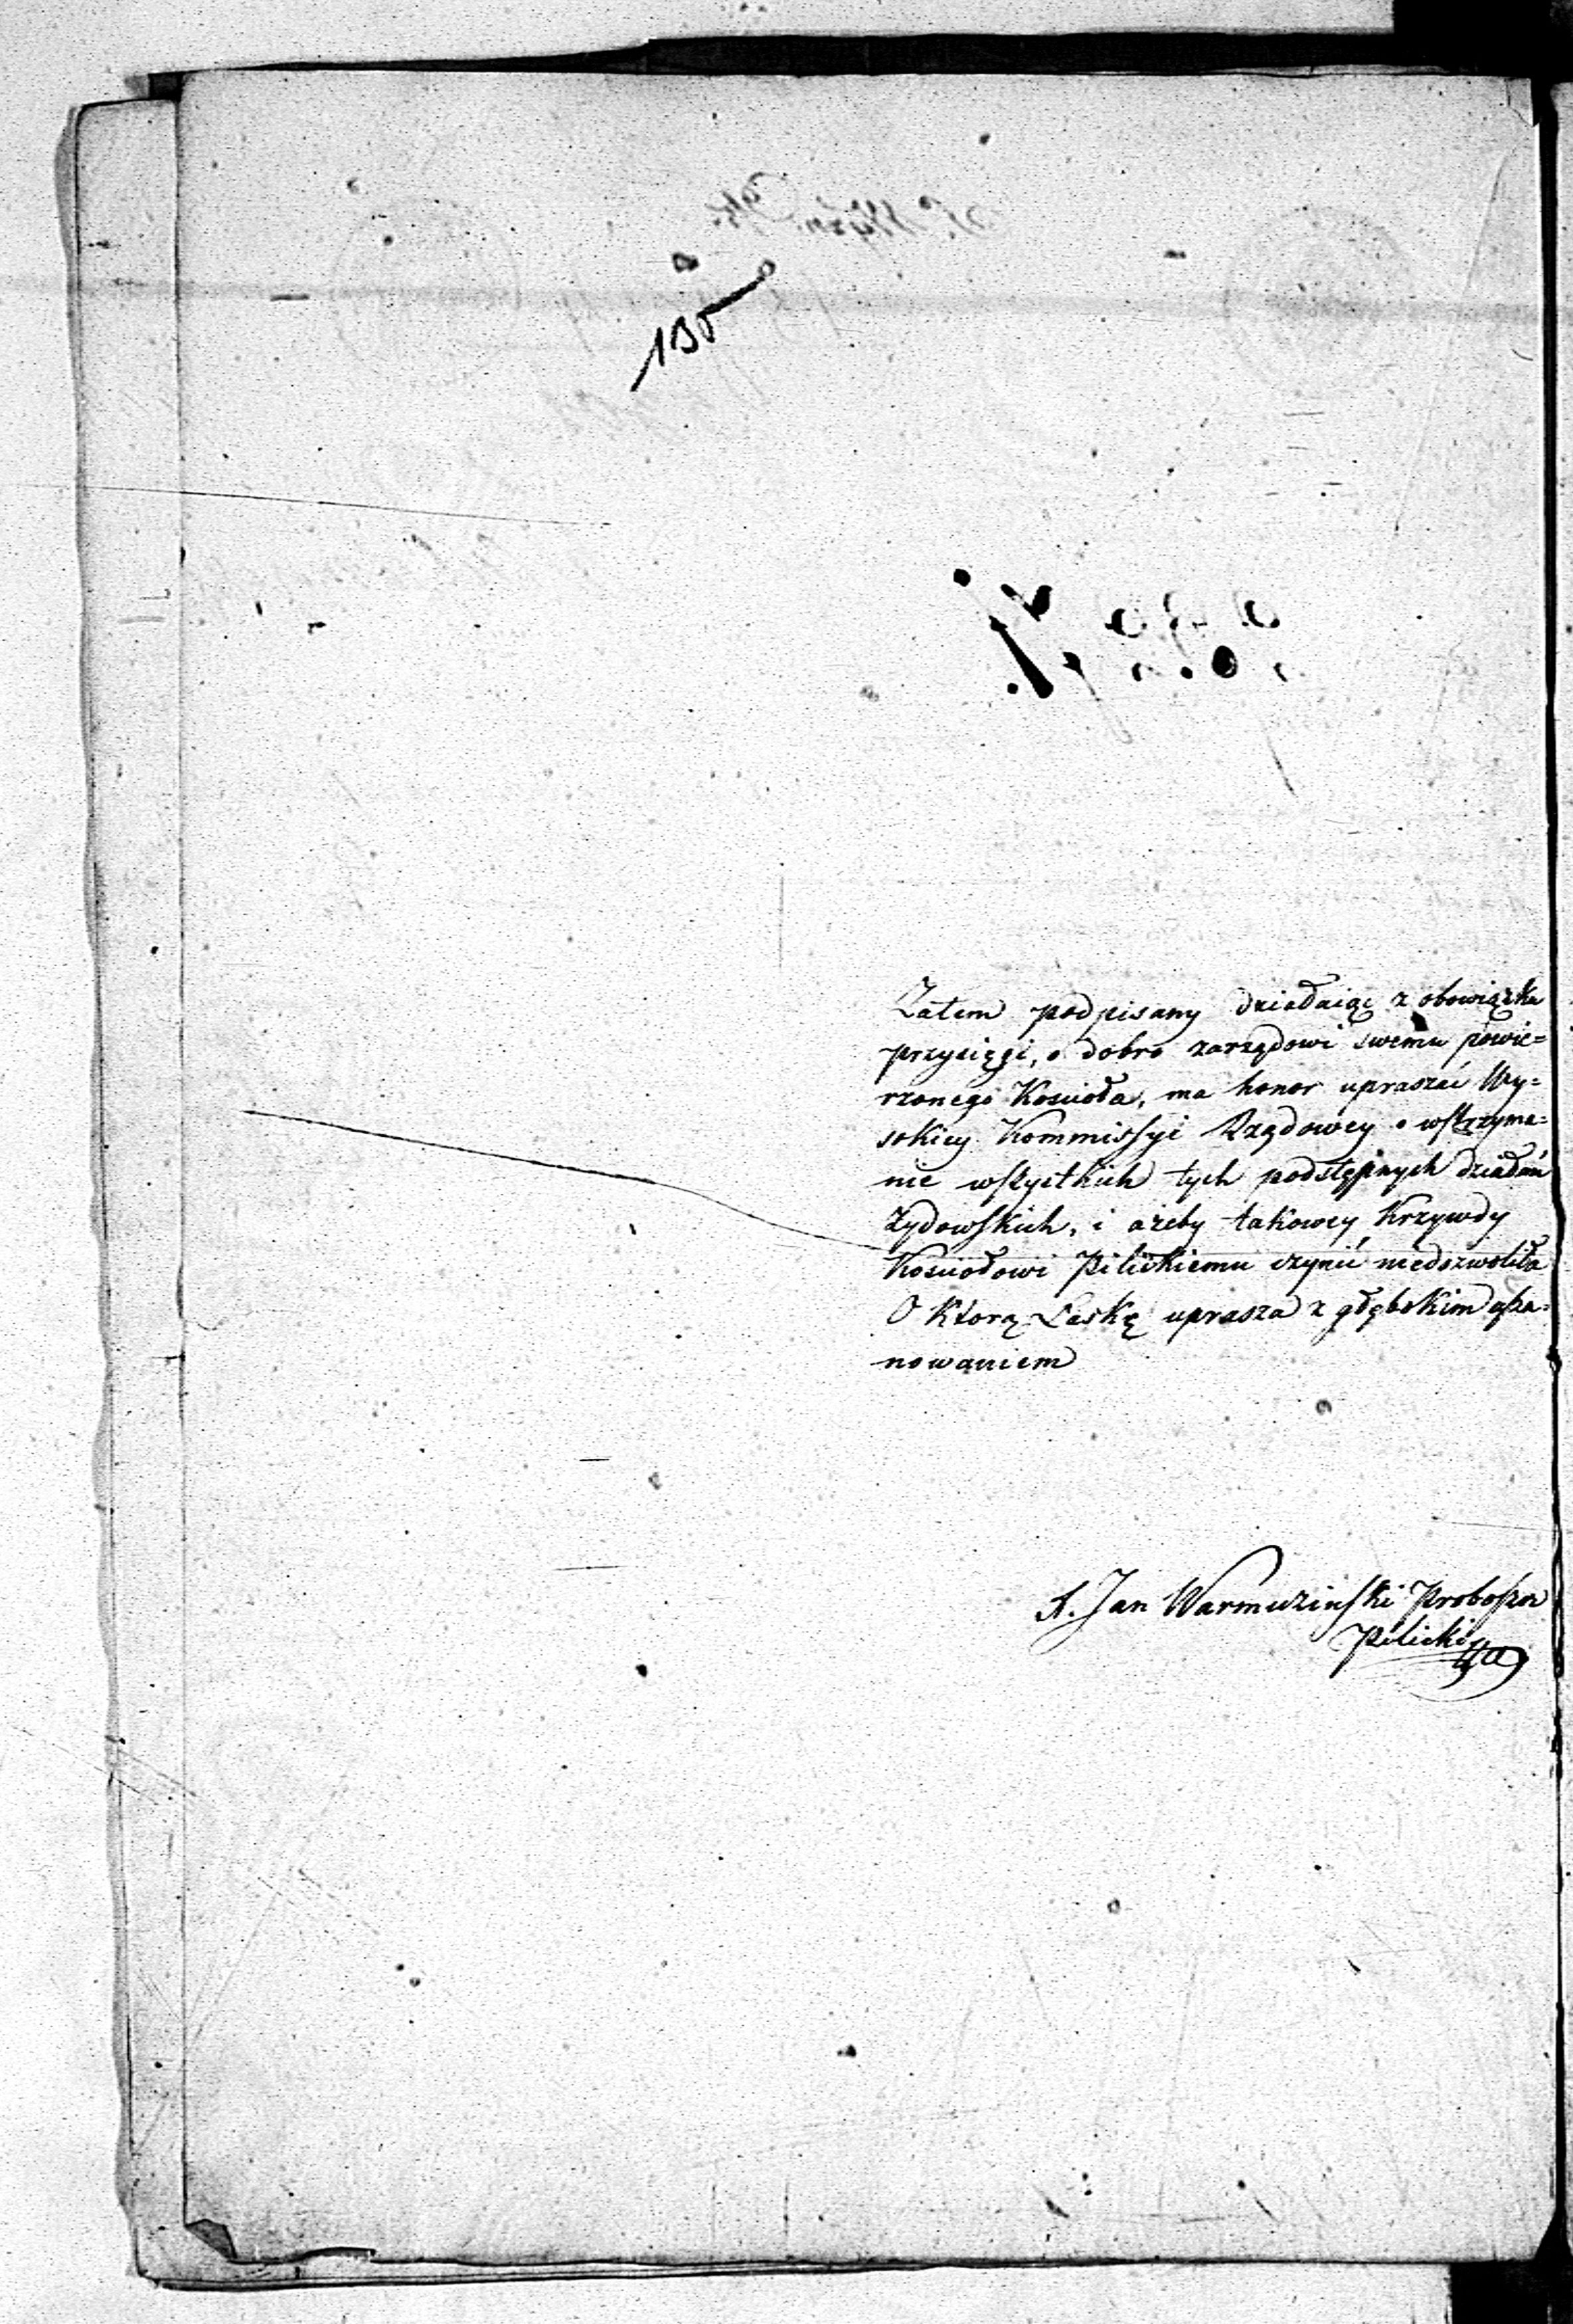 135
Zatem podpisany działaiąc z obowiązku
przysięgi, o dobro zarządowi swemu powie=
rzonego Koscioła, ma honor upraszać Wy=
sokiey Kommissyi Rządowey o wstrzyma=
nie wszystkich tych podstępnych działań
Żydowskich, i ażeby takowey Krzywdy
Kosciołowi Pilickiemu czynić niedozwoliła
O Ktorą Łaskę uprasza z głębokim usza=
nowaniem
X. Jan Warmuzinski Proboszcz
Pilicki